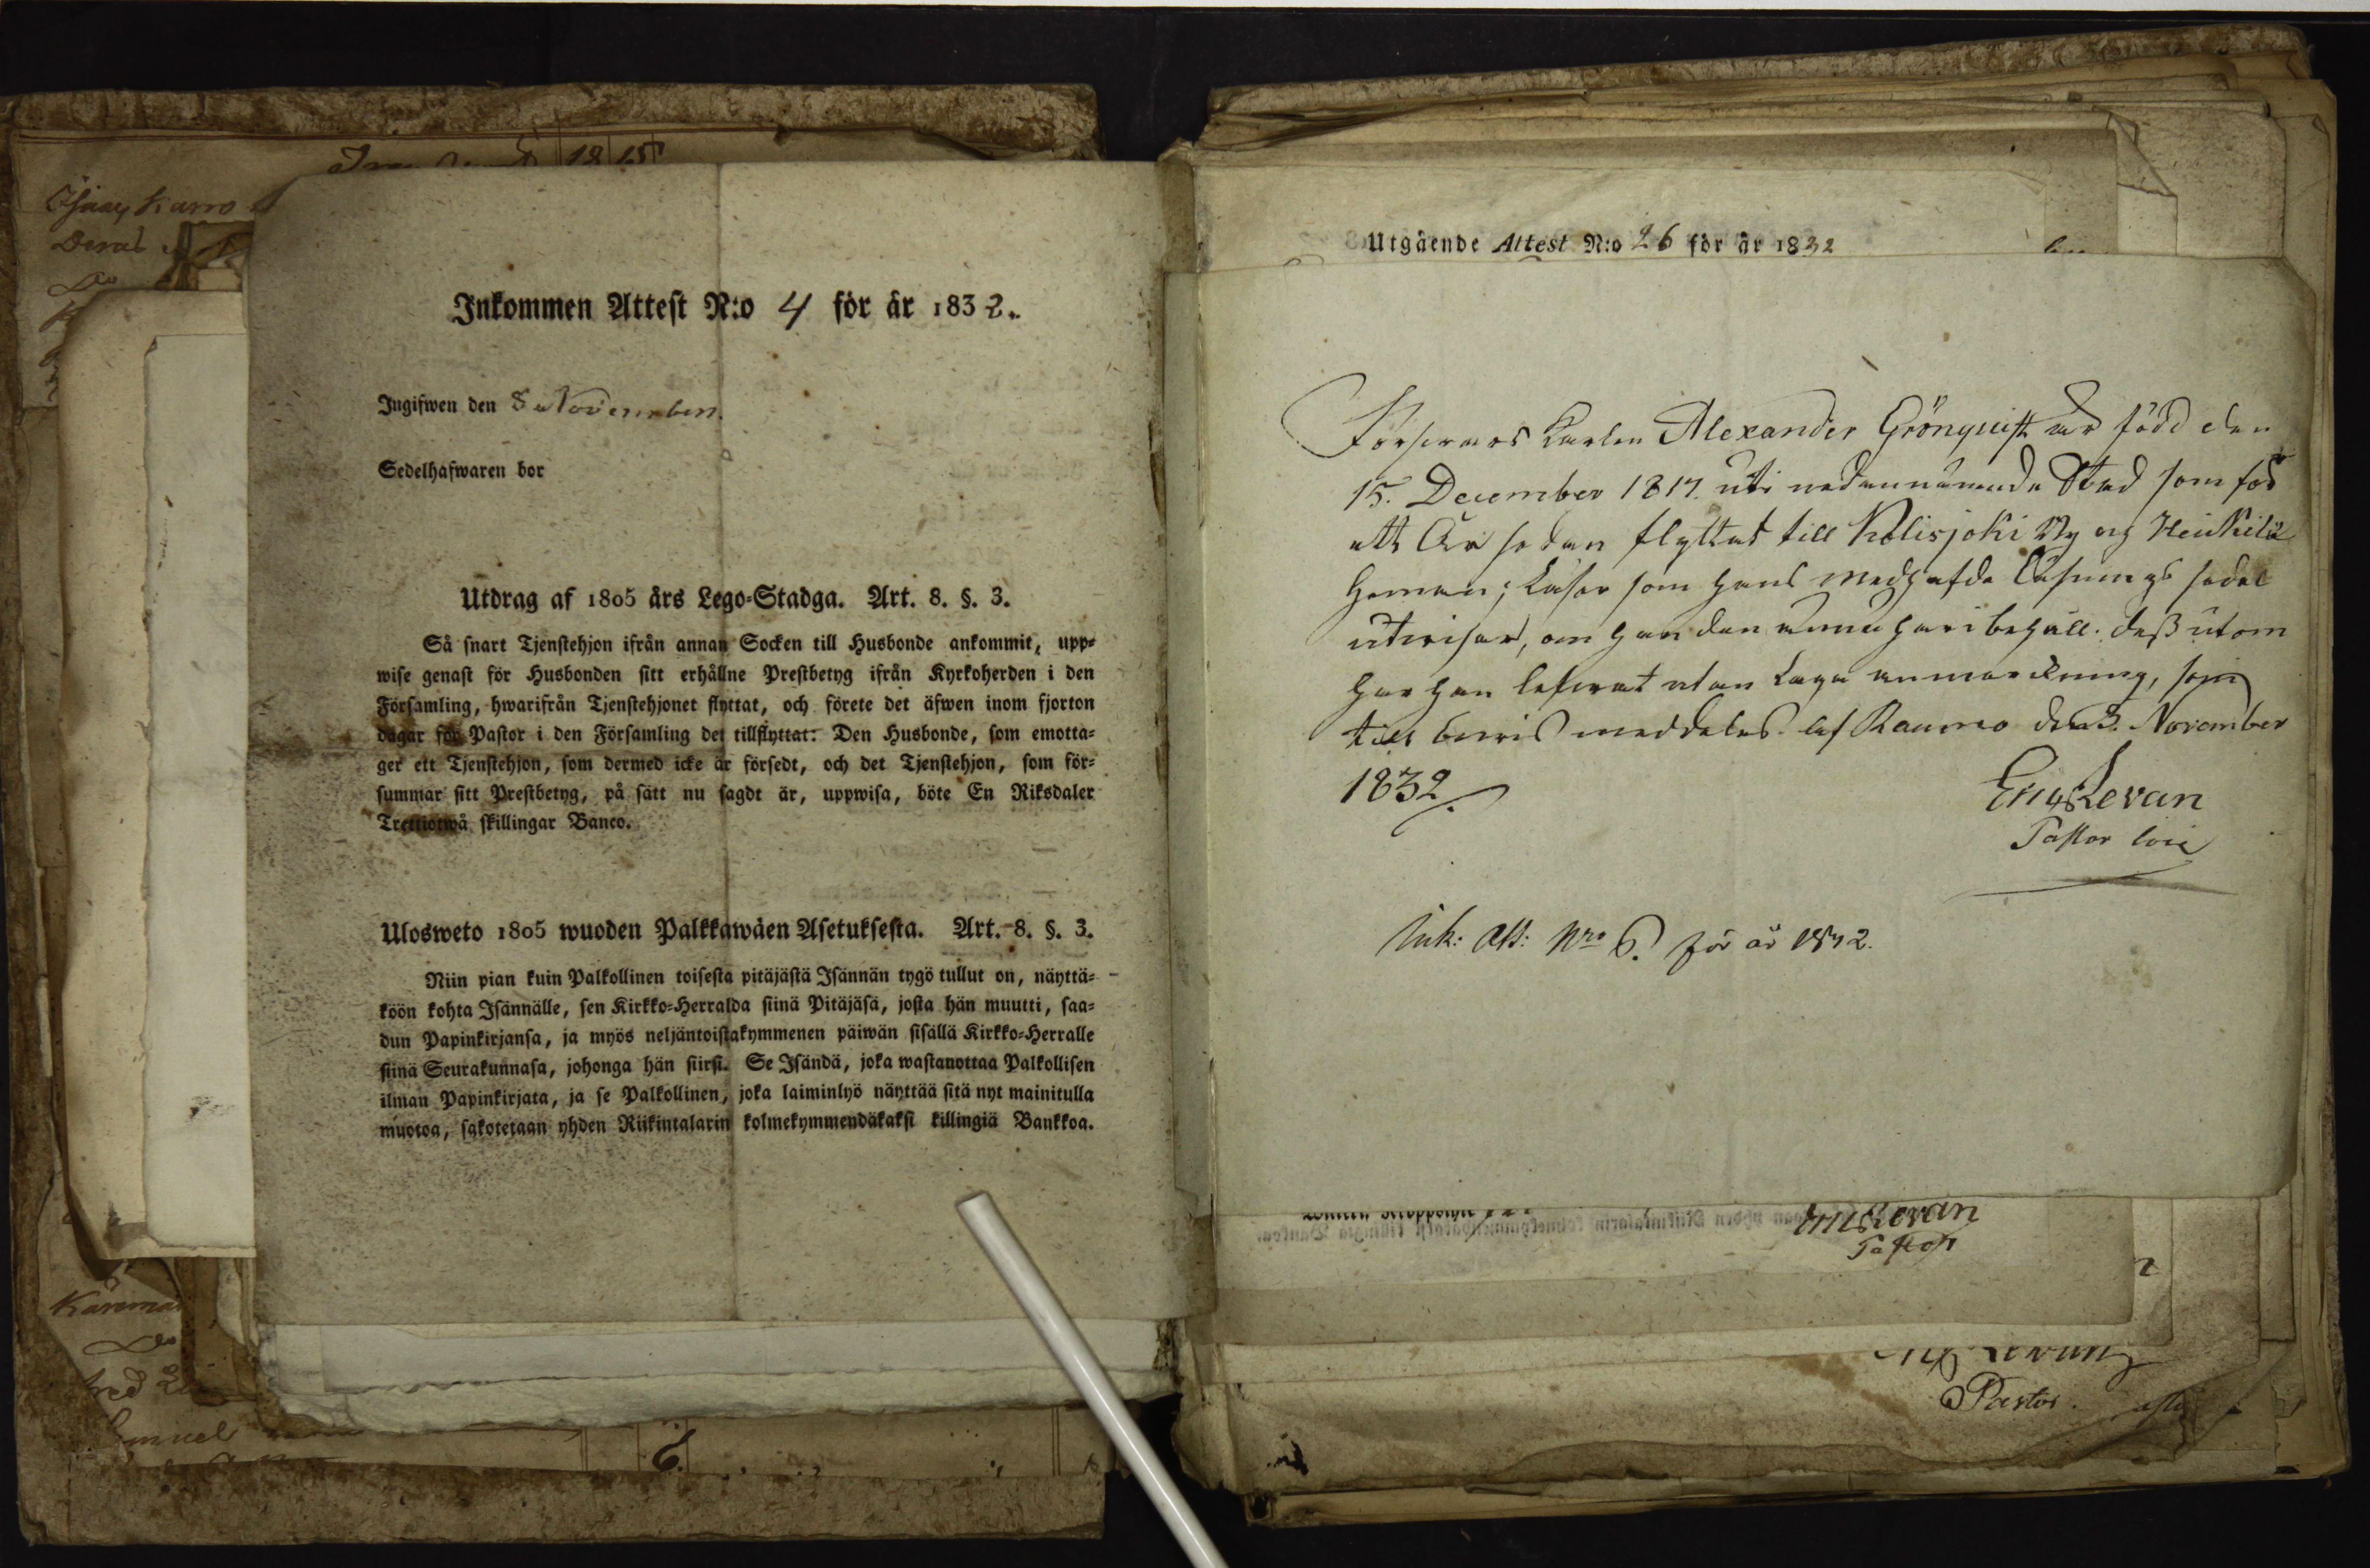 Inkommen Attest N:o 4 för år 1832.
Ingifwen den 8 November.
Sedelhafwaren bor
Utdrag af 1805 års Lego-Stadga. Art. 8. §. 3.
Så snart Tjenstehjon ifrån annan Socken till Husbonde ankommit, upp-
wise genast för Husbonden sitt erhållne Prestbetyg ifrån Kyrkoherden i den
Församling, hwarifrån Tjenstehjonet flyttat, och förete det äfwen inom fjorton
dagar för Pastor i den Församling det tillflyttat: Den Husbonde, som emotta-
ger ett Tjenstehjon, som dermed icke är försedt, och det Tjenstehjon, som för-
summar sitt Prestbetyg, på sätt nu sagdt är, uppwisa, böte En Riksdaler
Trettiotwå skillingar Banco.
Ulosweto 1805 wuoden Palkkawäen Asetuksesta. Art. 8. §. 3.
Niin pian kuin Palkollinen toisesta pitäjästä Isännän tygö tullut on, näyttä-
köön kohta Isännälle, sen Kirkko-Herralda siinä Pitäjäsä, josta hän muutti, saa-
dun Papinkirjansa, ja myös neljäntoistakymmenen päiwän sisällä Kirkko-Herralle
siinä Seurakunnasa, johonga hän siirsi. Se Isändä, joka wastanottaa Palkollisen
ilman Papinkirjata, ja se Palkollinen, joka laiminlyö näyttää sitä nyt mainitulla
muotoa, sakotetaan yhden Riikintalarin kolmekymmendäkaksi killingiä Bankkoa.
Utgående Attest N:o 26 för år 1832
Karlen Alexander Grönquist är född den
15. December 1817. uti nedannämnde Stad som för
ett År sedan flyttat till Kolisjoki By og Heikkilä
Heman; Läser som hans medhafde Läsnings sedel
utwisar, om han den ännu har i behåll. dessutom
har han lefwat utan Laga anmärckning, som
till bewis meddelas af Raumo den 3. November
1832.
Eric Levan
Pastor loci
Ink: Att: Nro 6. för år 1832.
Eric Levan
Pastor
Levan
Pastor.